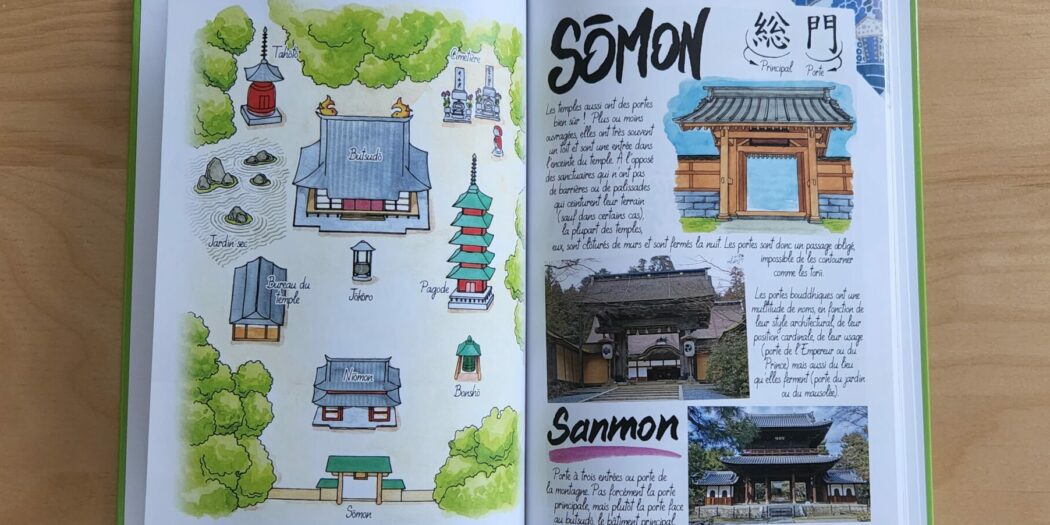 Tahōtō
Cimetière
Butsudō
Jardin sec
Bureau du
temple
Jōkōro
Pagode
Niōmon
Bonshō
Sōmon
SŌMON
総 門
Principal Porte
Les temples aussi ont des portes
bien sûr ! Plus ou moins
ouvragées, elles ont très souvent
un toit et sont une entrée dans
l'enceinte du temple. À l'opposé
des sanctuaires qui n'ont pas
de barrières ou de palissades
qui ceinturent leur terrain
(sauf dans certains cas),
la plupart des temples,
eux, sont clôturés de murs et sont fermés la nuit. Les portes sont donc un passage obligé,
impossible de les contourner
comme les torii.
Les portes bouddhiques ont une
multitude de noms, en fonction de
leur style architectural, de leur
position cardinale, de leur usage
(porte de l'Empereur ou du
Prince) mais aussi du lieu
qu'elles ferment (porte du jardin
ou du mausolée).
Sanmon
Porte à trois entrées ou porte de
la montagne. Pas forcément la porte
principale, mais plutôt la porte face
au butsudō, le bâtiment principal